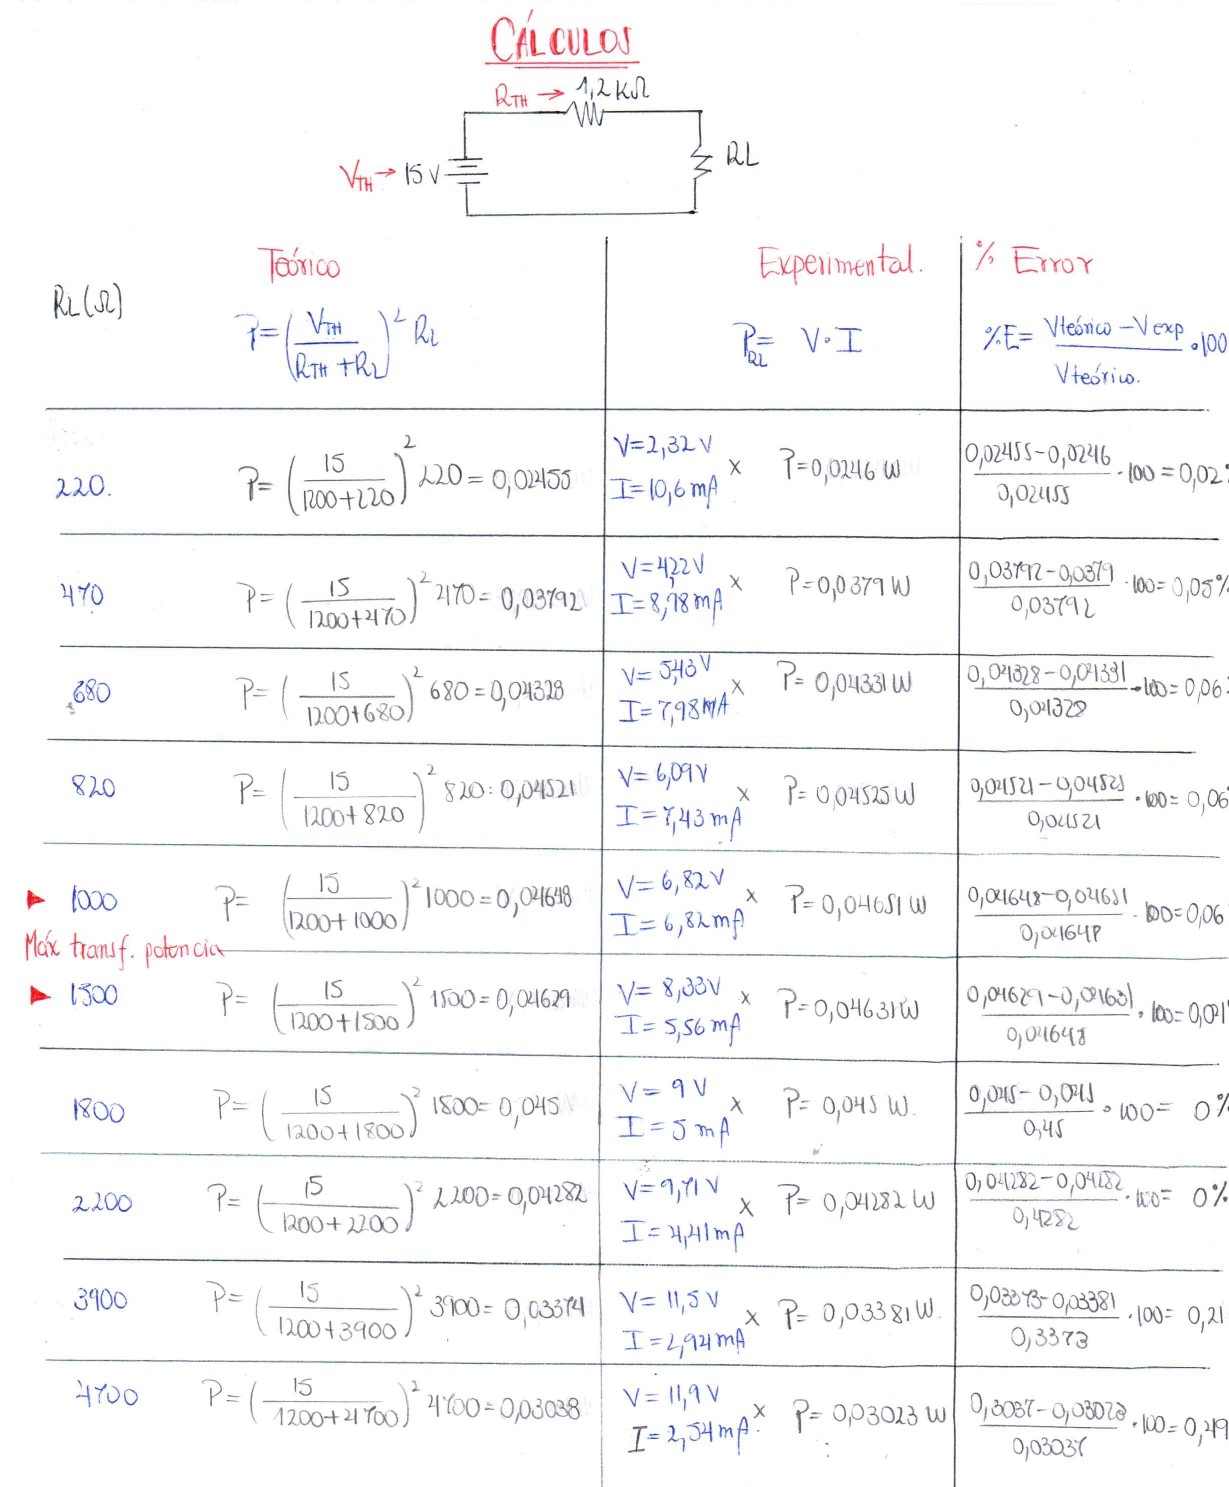 CÁLCULOS
RTH → 1,2 KΩ
VTH → 15 V
RL
Teórico
Experimental.
% Error
RL (Ω)
P = (VTH / (RTH + RL))² RL
PRL = V · I
%E = (Vteórico - V exp / Vteórico.) · 100
220.
P = (15 / (1200+220))² 220 = 0,02455
V = 2,32 V
I = 10,6 mA
x P = 0,0246 W
(0,02455 - 0,0246 / 0,02455) · 100 = 0,02%
470
P = (15 / (1200+470))² 470 = 0,03792
V = 4,22 V
I = 8,98 mA
x P = 0,0379 W
(0,03792 - 0,0379 / 0,03792) · 100 = 0,05%
680
P = (15 / (1200+680))² 680 = 0,04328
V = 5,43 V
I = 7,98 mA
x P = 0,04331 W
(0,04328 - 0,04331 / 0,04328) · 100 = 0,06
820
P = (15 / (1200+820))² 820 = 0,04521
V = 6,09 V
I = 7,43 mA
x P = 0,04525 W
(0,04521 - 0,04525 / 0,04521) · 100 = 0,06
1000
P = (15 / (1200+1000))² 1000 = 0,04648
V = 6,82 V
I = 6,82 mA
x P = 0,04651 W
(0,04648 - 0,04651 / 0,04648) · 100 = 0,06
Máx transf. potencia
1500
P = (15 / (1200+1500))² 1500 = 0,04629
V = 8,33 V
I = 5,56 mA
x P = 0,04631 W
(0,04629 - 0,04631 / 0,04648) · 100 = 0,04
1800
P = (15 / (1200+1800))² 1800 = 0,045
V = 9 V
I = 5 mA
x P = 0,045 W.
(0,045 - 0,045 / 0,45) · 100 = 0%
2200
P = (15 / (1200+2200))² 2200 = 0,04282
V = 9,71 V
I = 4,41 mA
x P = 0,04282 W
(0,04282 - 0,04282 / 0,4282) · 100 = 0%
3900
P = (15 / (1200+3900))² 3900 = 0,03374
V = 11,5 V
I = 2,94 mA
x P = 0,03381 W.
(0,03373 - 0,03381 / 0,3373) · 100 = 0,21
4700
P = (15 / (1200+4700))² 4700 = 0,03038
V = 11,9 V
I = 2,54 mA.
x P = 0,03023 W
(0,3037 - 0,03023 / 0,03037) · 100 = 0,49